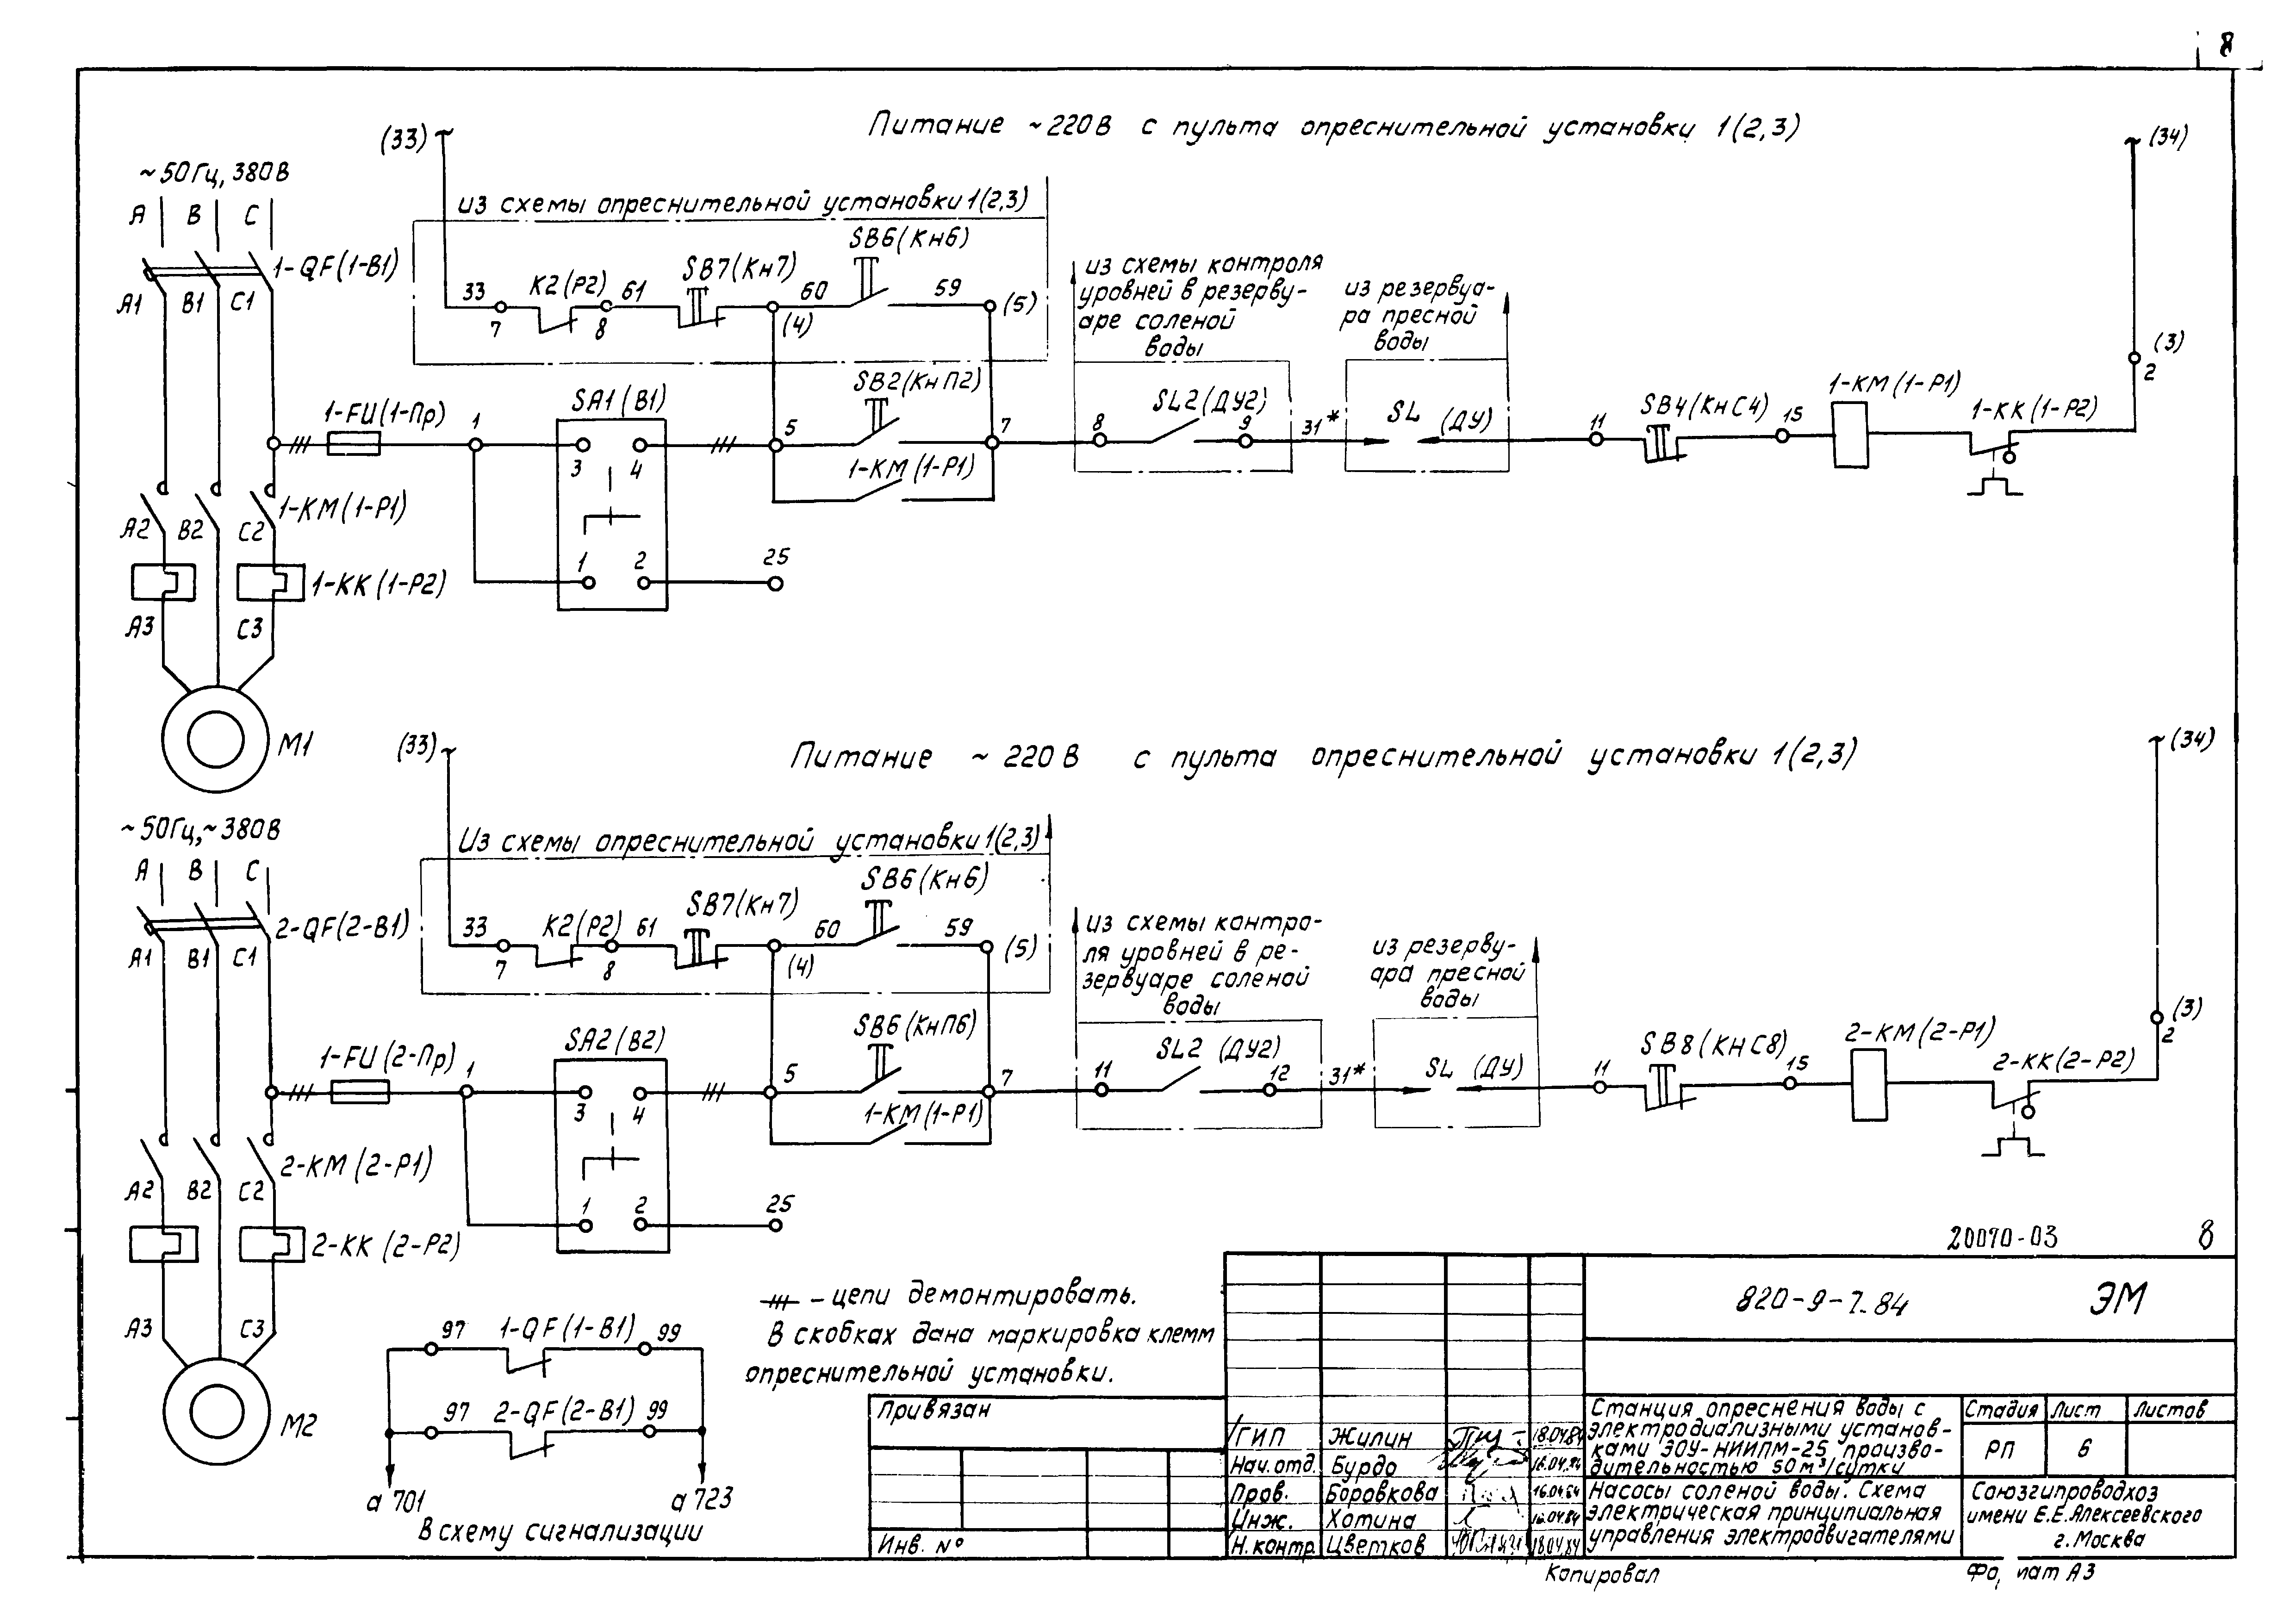 8
Питание ~220В с пульта опреснительной установки 1(2,3)
(33)
(34)
~50Гц, 380В
А В С
из схемы опреснительной установки 1(2,3)
1-QF(1-В1)
А1 В1 С1
33
7
К2(Р2)
8
61
SB7(Кн7)
60
(4)
SB6(Кн6)
59
(5)
из схемы контроля
уровней в резерву-
аре соленой
воды
из резервуа-
ра пресной
воды
(3)
2
1-FU(1-Пр)
1
SA1(В1)
3 4
1 2
25
5
SB2(КнП2)
7
1-КМ(1-Р1)
8
SL2(ДУ2)
9
31*
SL (ДУ)
11
SB4(КнС4)
15
1-КМ(1-Р1)
1-КК(1-Р2)
1-КМ(1-Р1)
А2 В2 С2
1-КК(1-Р2)
А3 С3
М1
Питание ~220В с пульта опреснительной установки 1(2,3)
(33)
(34)
~50Гц,~380В
А В С
Из схемы опреснительной установки 1(2,3)
2-QF(2-В1)
А1 В1 С1
33
7
К2(Р2)
8
61
SB7(Кн7)
60
(4)
SB6(Кн6)
59
(5)
из схемы контро-
ля уровней в ре-
зервуаре соленой
воды
из резерву-
ара пресной
воды
(3)
2
1-FU(2-Пр)
1
SA2(В2)
3 4
1 2
25
5
SB6(КнП6)
7
1-КМ(1-Р1)
11
SL2 (ДУ2)
12
31*
SL (ДУ)
11
SB8(КНС8)
15
2-КМ(2-Р1)
2-КК(2-Р2)
2-КМ(2-Р1)
А2 В2 С2
2-КК(2-Р2)
А3 С3
М2
97 1-QF(1-В1) 99
97 2-QF(2-В1) 99
а 701 а 723
В схему сигнализации
– цепи демонтировать.
В скобках дана маркировка клемм
опреснительной установки.
20070-03 8
820-9-7.84 ЭМ
Привязан
Инв. №
ГИП Жилин 18.04.84
Нач.отд. Бурдо 16.04.84
Пров. Боровкова 16.04.84
Инж. Хотина 16.04.84
Н.контр. Цветков 18.04.84
Станция опреснения воды с
электродиализными установ-
ками ЭОУ-НИИПМ-25 произво-
дительностью 50м³/сутки
Стадия Лист Листов
РП 6
Насосы соленой воды. Схема
электрическая принципиальная
управления электродвигателями
Союзгипроводхоз
имени Е.Е.Алексеевского
г.Москва
Копировал
А3